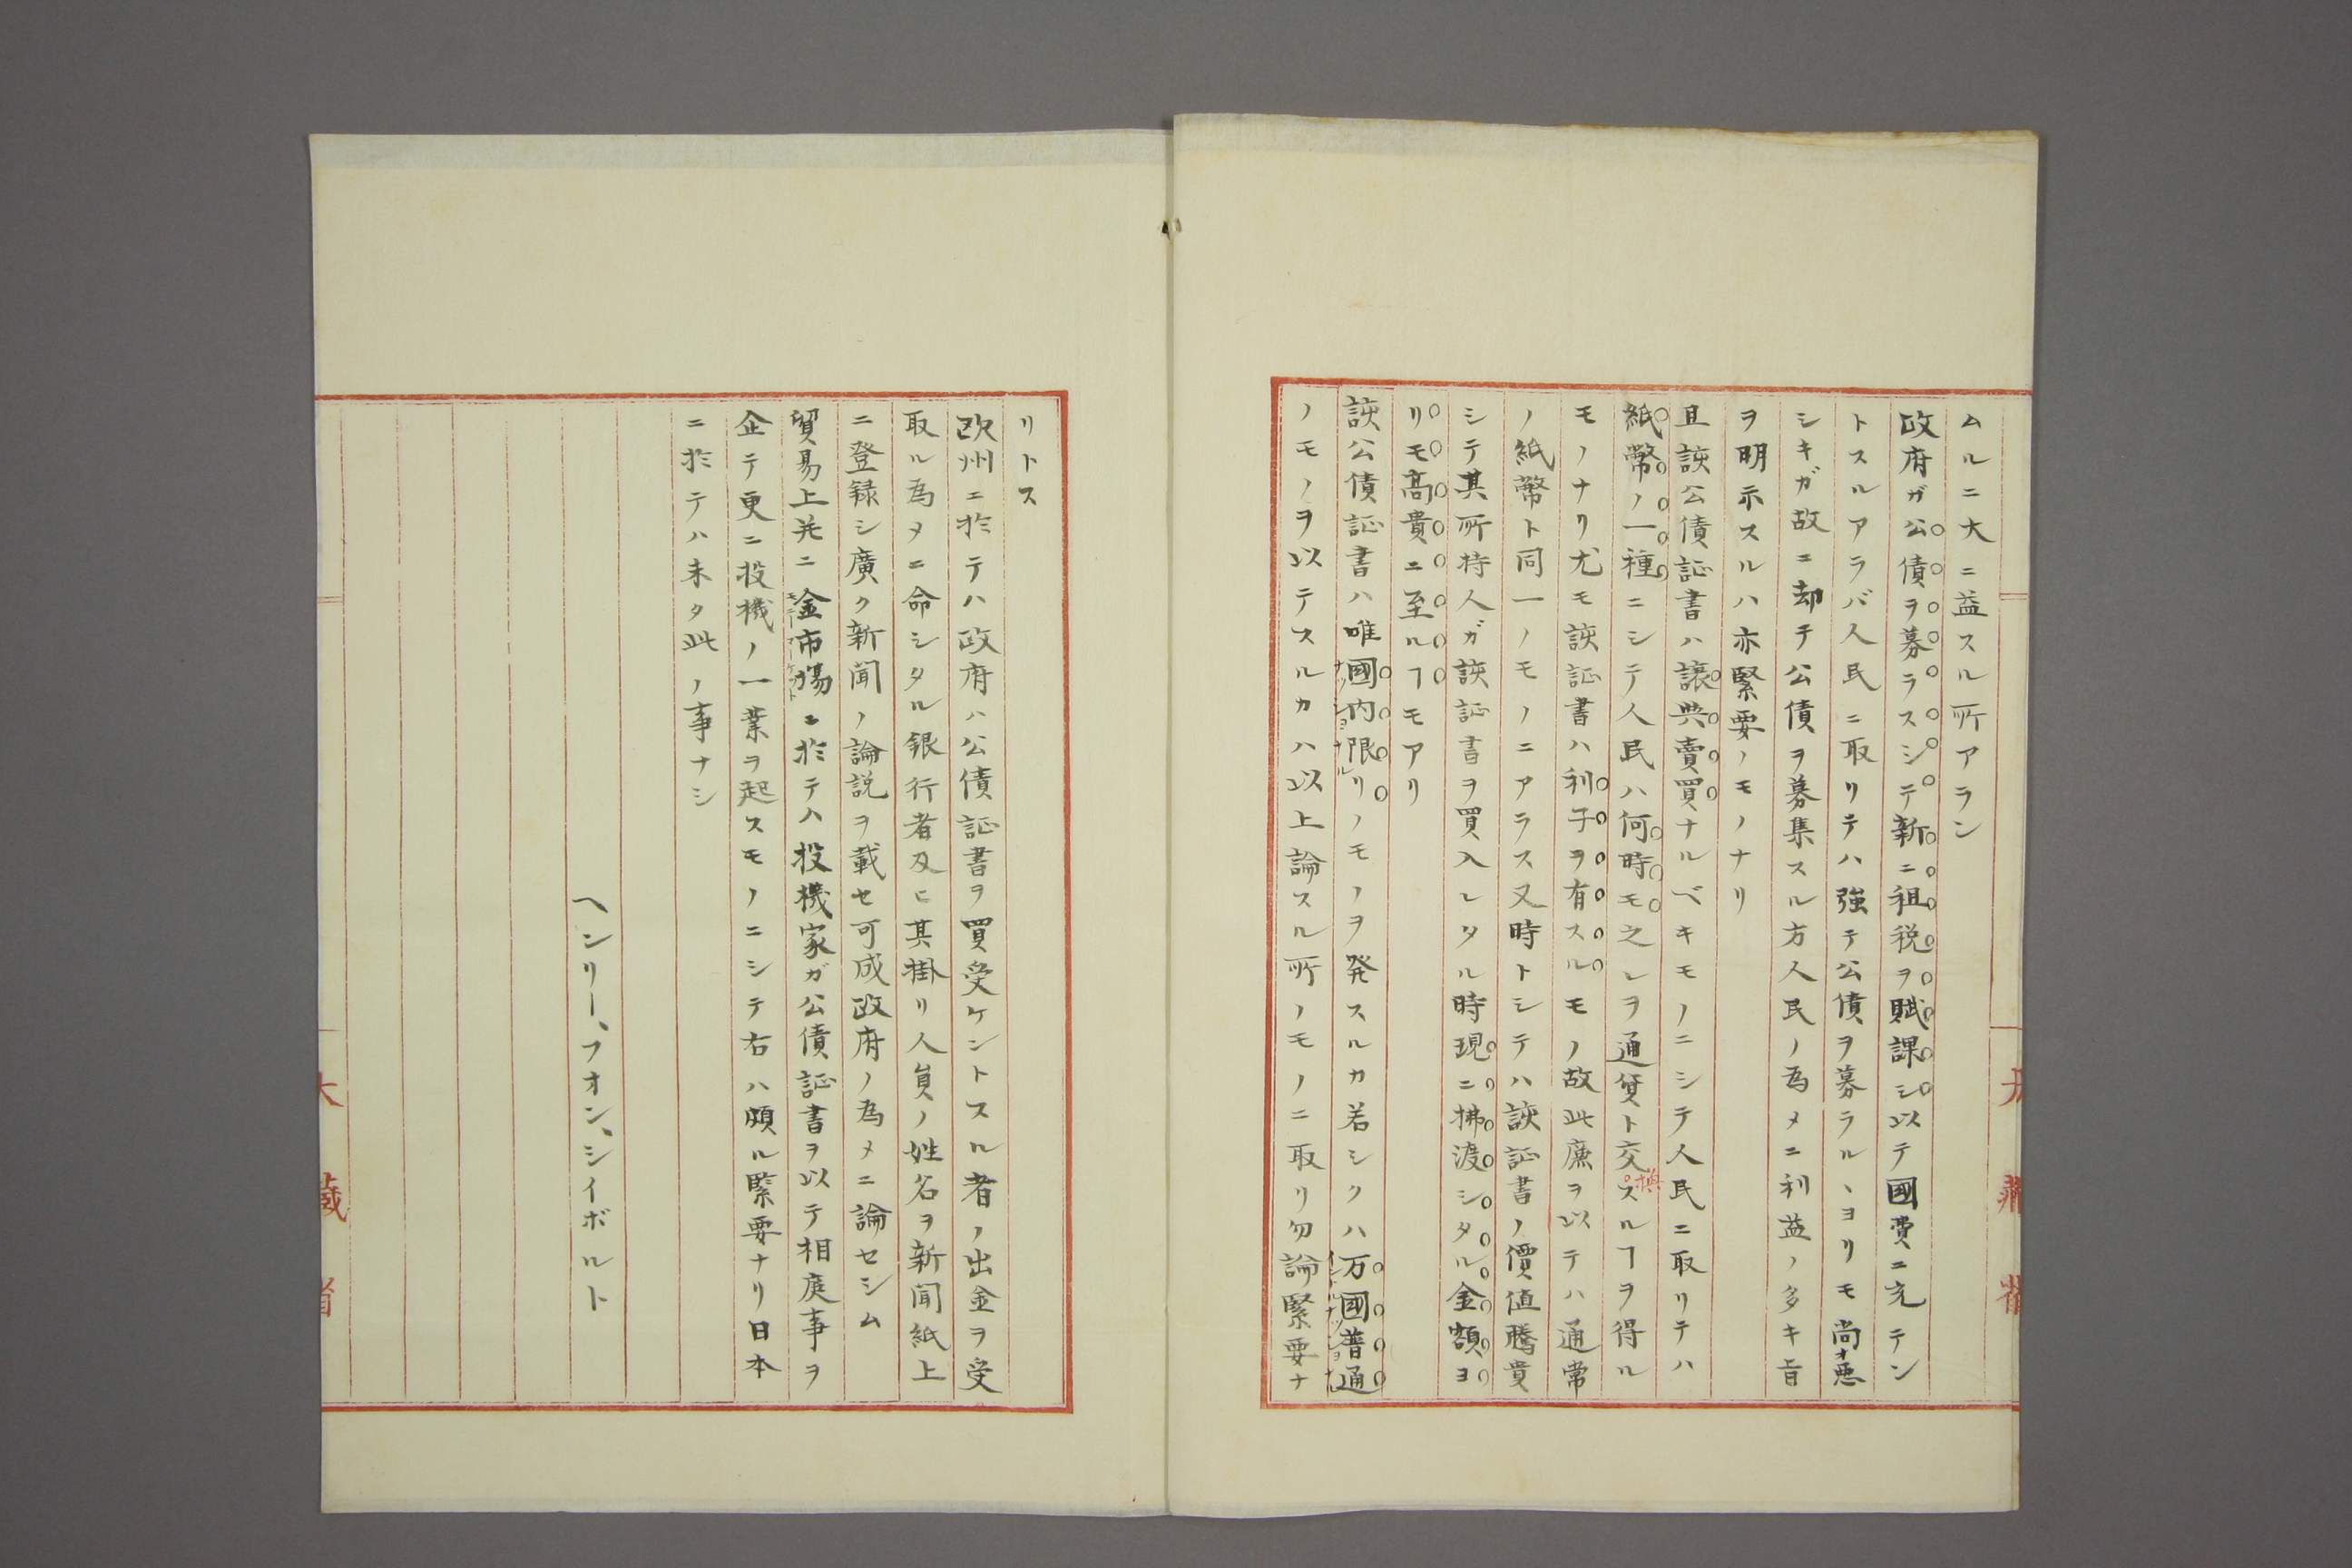 ムルニ大ニ益スル所アラン
政府ガ公債ヲ募ラスシテ新ニ祖税ヲ賦課シ以テ國費ニ充テン
トスルアラバ人民ニ取リテハ強テ公債ヲ募ラルヽヨリモ尚オ悪
シキガ故ニ却テ公債ヲ募集スル方人民ノ為メニ利益ノ多キ旨
ヲ明示スルハ亦緊要ノモノナリ
且該公債証書ハ譲與賣買ナルベキモノニシテ人民ニ取リテハ
紙幣ノ一種ニシテ人民ハ何時モ之レヲ通貨ト交換スルヿヲ得ル
モノナリ尤モ該証書ハ利子ヲ有スルモノ故此廉ヲ以テハ通常
ノ紙幣ト同一ノモノニアラス又時トシテハ該証書ノ價値騰貴
シテ其所持人ガ該証書ヲ買入レタル時現ニ拂渡シタル金額ヨ
リモ高貴ニ至ルヿモアリ
該公債証書ハ唯國内限リノモノヲ発スルカ若シクハ万國普通
ナッショナル
インテルナッショナル
ノモノヲ以テスルカハ以上論スル所ノモノニ取リ勿論緊要ナ
大藏省
リトス
欧州ニ於テハ政府ハ公債証書ヲ買受ケントスル者ノ出金ヲ受
取ル為メニ命シタル銀行者及ヒ其掛リ人員ノ姓名ヲ新聞紙上
ニ登録シ廣ク新聞ノ論説ヲ載セ可成政府ノ為メニ論セシム
貿易上并ニ金市場ニ於テハ投機家ガ公債証書ヲ以テ相庭事ヲ
モニーマーケット
企テ更ニ投機ノ一業ヲ起スモノニシテ右ハ頗ル緊要ナリ日本
ニ於テハ未タ此ノ事ナシ
ヘンリー、フオン、シイボルト
大藏省